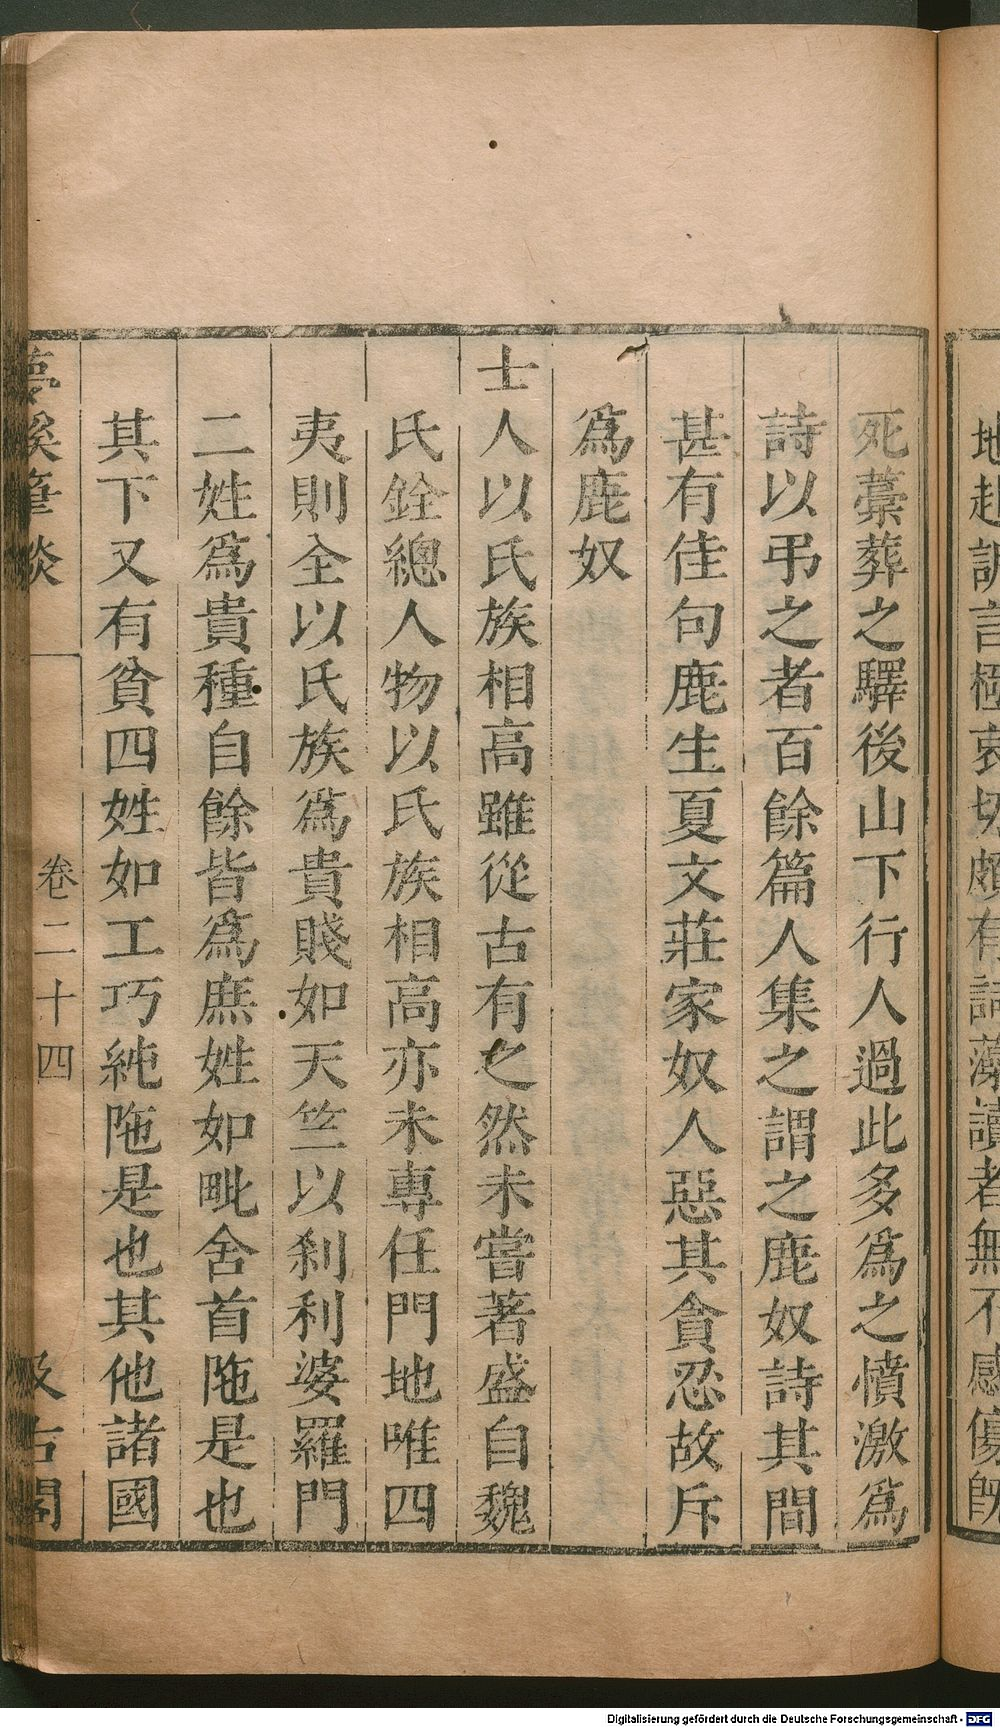 地起調言極哀切頗有詩藻讀者無不感傷既
死藁葬之驛後山下行人過此多爲之憤激爲
詩以弔之者百餘篇人集之謂之鹿奴詩其間
甚有佳句鹿生夏文莊家奴人惡其貪忍故斥
爲鹿奴
士人以氏族相高雖從古有之然未嘗著盛自魏
氏銓總人物以氏族相高亦未專任門地唯四
夷則全以氏族爲貴賤如天竺以刹利婆羅門
二姓爲貴種自餘皆爲庶姓如毗舍首陁是也
其下又有貧四姓如工巧純陁是也其他諸國
夢溪筆談 卷二十四 汲古閣
Digitalisierung gefördert durch die Deutsche Forschungsgemeinschaft - DFG